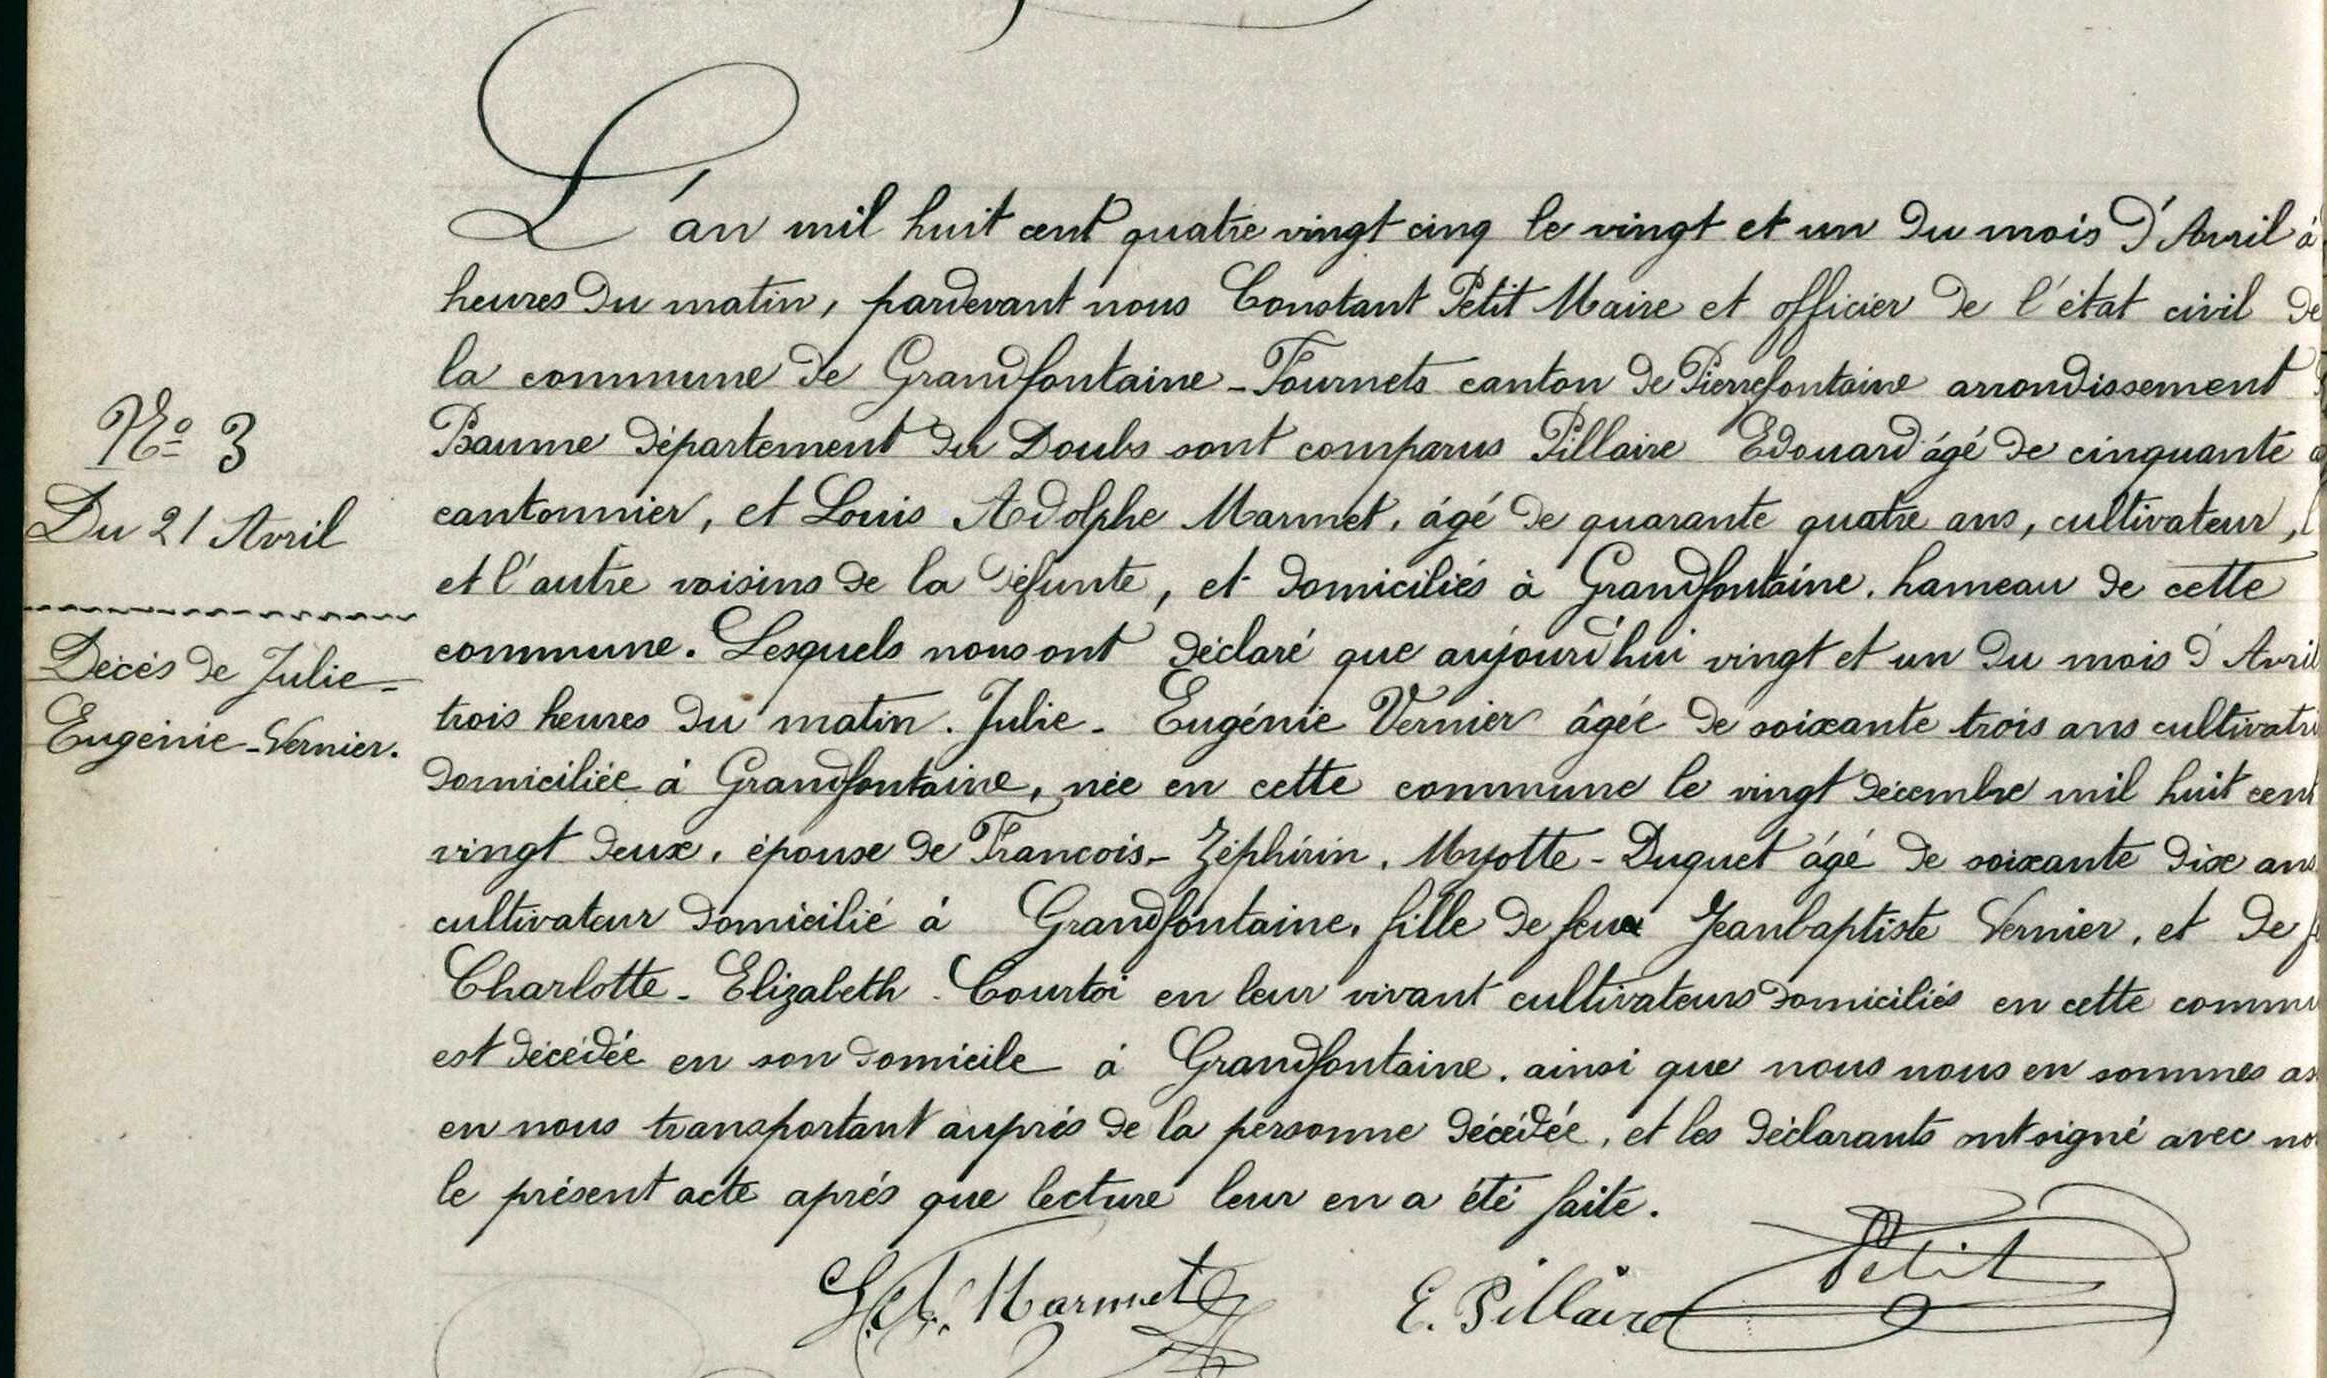 L'an mil huit cent quatre vingt cinq le vingt et un du mois d'Avril à
heures du matin, pardevant nous Constant Petit Maire et officier de l'état civil de
la commune de Grandfontaine-Fournets canton de Pierrefontaine arrondissement
N° 3
Baume département du Doubs sont comparus Pillaire Edouard âgé de cinquante
Du 21 Avril
cantonnier, et Louis Adolphe Marmet, âgé de quarante quatre ans, cultivateur,
et l'autre voisins de la défunte, et domiciliés à Grandfontaine, hameau de cette
commune. Lesquels nous ont déclaré que aujourd'hui vingt et un du mois d'Avril
Décès de Julie-
Eugénie-Vernier.
trois heures du matin. Julie-Eugénie Vernier âgée de soixante trois ans cultivatri
domiciliée à Grandfontaine, née en cette commune le vingt décembre mil huit cent
vingt deux, épouse de Francois-Zéphirin, Myotte-Duquet âgé de soixante dix ans
cultivateur domicilié à Grandfontaine, fille de feu Jeanbaptiste Vernier, et de
Charlotte-Elizabeth-Courtoi en leur vivant cultivateurs domiciliés en cette commu
est décédée en son domicile à Grandfontaine, ainsi que nous nous en sommes as
en nous transportant auprès de la personne décédée, et les déclarants ont signé avec no
le présent acte après que lecture leur en a été faite.
L.A. Marmet E. Pillaire Petit